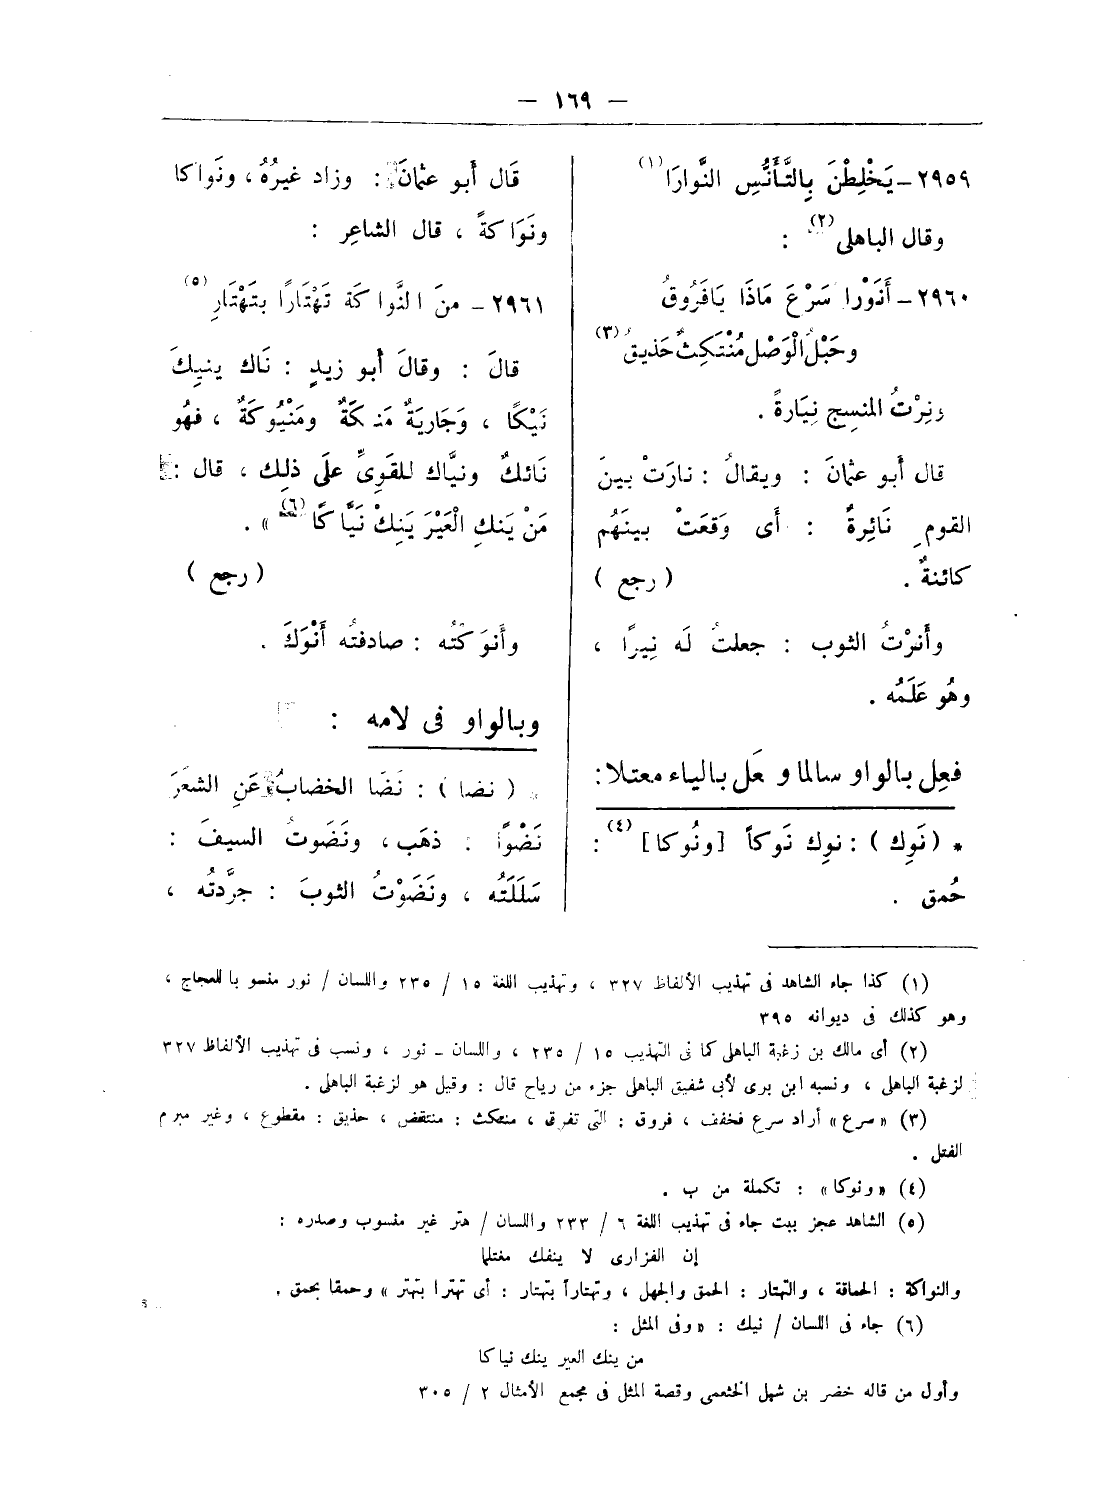 — ١٦٩ —
٢٩٥٩ – يَخْلِطْنَ بِالتَّأَنُّسِ النَّوارَا (١)
وقال الباهلى (٢) :
٢٩٦٠ – أَنَوْرا سَرْعَ مَاذَا يَافَرُوقُ
وحَبْلُ الْوَصْلِ مُنْتَكِثٌ حَذيقُ (٣)
ونِرْتُ المنسِج نِيَارَةً .
قال أَبو عثمانَ : ويقالُ : نارَتْ بينَ
القومِ نَائِرةٌ : أَى وَقعَتْ بينَهُم
كائنةٌ . ( رجع )
وأَنرْتُ الثوب : جعلتُ لَه نِيرًا ،
وهُو عَلَمُه .
فعِل بالواو سالما وفعَل بالياء معتلا :
* ( نَوِك ) : نوِك نَوكاً [ ونُوكا ] (٤) :
حُمق .
قَال أَبو عثمانَ : وزاد غيرُهُ ، ونَواكا
ونَوَاكةً ، قال الشاعِر :
٢٩٦١ – منَ النَّواكَة تَهْتَارًا بتَهْتَارِ (٥)
قالَ : وقالَ أَبو زيدٍ : نَاك ينيِكَ
نَيْكًا ، وَجَاريَةٌ مَنِكَةٌ ومَنْيُوكَةٌ ، فهُو
نَائكٌ ونيَّاك للقَوِىِّ علَى ذلِك ، قال :
مَنْ يَنكِ الْعَيْرَ يَنِكْ نَيَّاكًا (٦) » .
( رجع )
وأَنوَكتُه : صادفتُه أَنْوَكَ .
وبالواو فى لامه :
* ( نضا ) : نَضَا الخضابُ عَنِ الشعَرَ
نَضْوًا : ذهَب ، ونَضَوتُ السيفَ :
سَلَلتُه ، ونَضَوْتُ الثوبَ : جرَّدتُه ،
(١) كذا جاء الشاهد فى تهذيب الألفاظ ٣٢٧ ، وتهذيب اللغة ١٥ / ٢٣٥ واللسان / نور منسوبا للعجاج ،
وهو كذلك فى ديوانه ٣٩٥
(٢) أى مالك بن زغبة الباهلى كما فى التهذيب ١٥ / ٢٣٥ ، واللسان – نور ، ونسب فى تهذيب الألفاظ ٣٢٧
لزغبة الباهلى ، ونسبه ابن برى لأبى شفيق الباهلى جزء من رياح قال : وقيل هو لزغبة الباهلى .
(٣) « سرع » أراد سرع فخفف ، فروق : التى تفرق ، منتكث : منتقض ، حذيق : مقطوع ، وغير مبرم
الفتل .
(٤) « ونوكا » : تكملة من ب .
(٥) الشاهد عجز بيت جاء فى تهذيب اللغة ٦ / ٢٣٣ واللسان / هتر غير منسوب وصدره :
إن الفزارى لا ينفك مغتلما
والنواكة : الحماقة ، والتهتار : الحمق والجهل ، وتهتاراً بتهتار : أى تهترا بتهتر » وحمقا بحمق .
(٦) جاء فى اللسان / نيك : « وفى المثل :
من ينك العير ينك نياكا
وأول من قاله خضر بن شبل الخثعمى وقصة المثل فى مجمع الأمثال ٢ / ٣٠٥